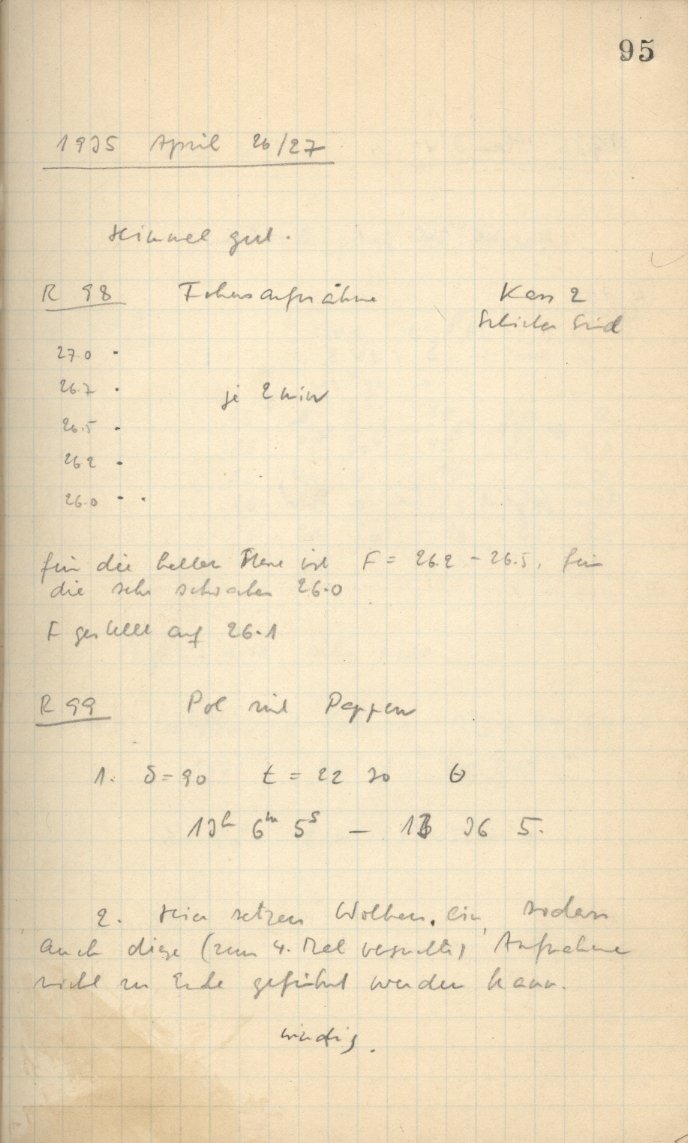 95
1935 April 26/27
Himmel gut.
R 98 Fokusaufnahme Kass 2
Schicht Süd
27.0 •
26.7 • je 2 min
26.5 •
26.2 •
26.0 • •
für die hellen Sterne ist F = 26.2 - 26.5, für
die sehr schwachen 26.0
F gestellt auf 26.1
R 99 Pol mit Pappen
1. δ = 90 t = 22 30 θ
13h 6m 5s — 13 36 5.
2. Hier setzen Wolken ein, sodass
auch diese (zum 4. Mal versuchte) Aufnahme
nicht zu Ende geführt werden kann.
windig.